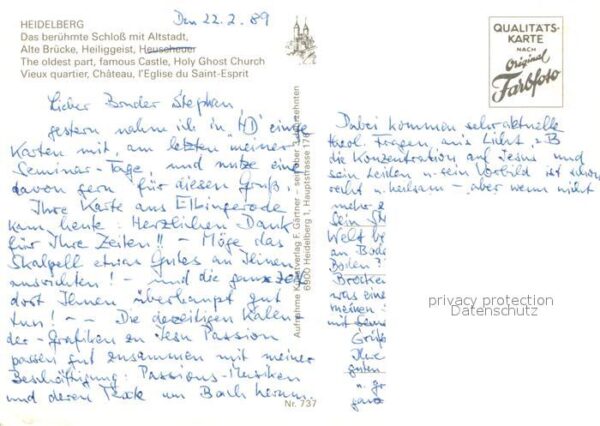 HEIDELBERG
Das berühmte Schloß mit Altstadt,
Alte Brücke, Heiliggeist, Heuscheuer
The oldest part, famous Castle, Holy Ghost Church
Vieux quartier, Château, l'Eglise du Saint-Esprit
Den 22.2.89
Lieber Bruder Stephan,
gestern nahm ich in "HD" einige
Karten mit, am letzten meiner
Seminar-Tage, und nutze eine
davon gern für diesen Gruß.
Ihre Karte aus Elbingerode
kam heute: Herzlichen Dank
für Ihre Zeilen!! - Möge das
Skalpell etwas Gutes an Ihnen
ausrichten! - und die ganze Zeit
dort Ihnen überhaupt gut
tun! - - Die derzeitigen Kalen-
der-Grafiken zu Jesu Passion
passen gut zusammen mit meiner
Beschäftigung: Passions-Musiken
und deren Texte um Bach herum.
Nr. 737
Aufnahme Kunstverlag F. Gärtner - seit über 3 Jahrzehnten
6900 Heidelberg 1, Hauptstrasse 176
QUALITÄTS-
KARTE
NACH
Original
Farbfoto
Dabei kommen sehr aktuelle
theol. Fragen ans Licht, z.B
die Konzentration auf Jesus und
sein Leiden u. sein Vorbild ist schon
recht u. heilsam - aber wenn nicht
mehr
Sein
Welt
an Bode
Boden
Brocken
was eine
meinen
mit
Grüße
Ihre
guten
u. gr
ganz
privacy protection
Datenschutz